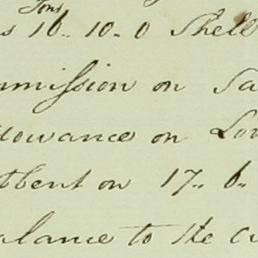 Tons
s 16.. 10.. 0 Shell
mmission on Sa
lowance on Lo
tbent on 17.. 6..
alance to the cr